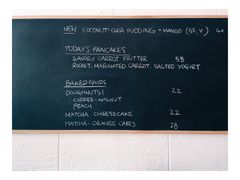 NEW COCONUT CHIA PUDDING + MANGO (GF, V) 40
TODAY'S PANCAKES
SAVORY CARROT FRITTER 58
ROCKET. MARINATED CARROT. SALTED YOGURT
BAKED GOODS
DOUGHNUTS! 22
COFFEE-WALNUT
PEACH
MATCHA CHEESECAKE 22
MATCHA-ORANGE CAKES 28